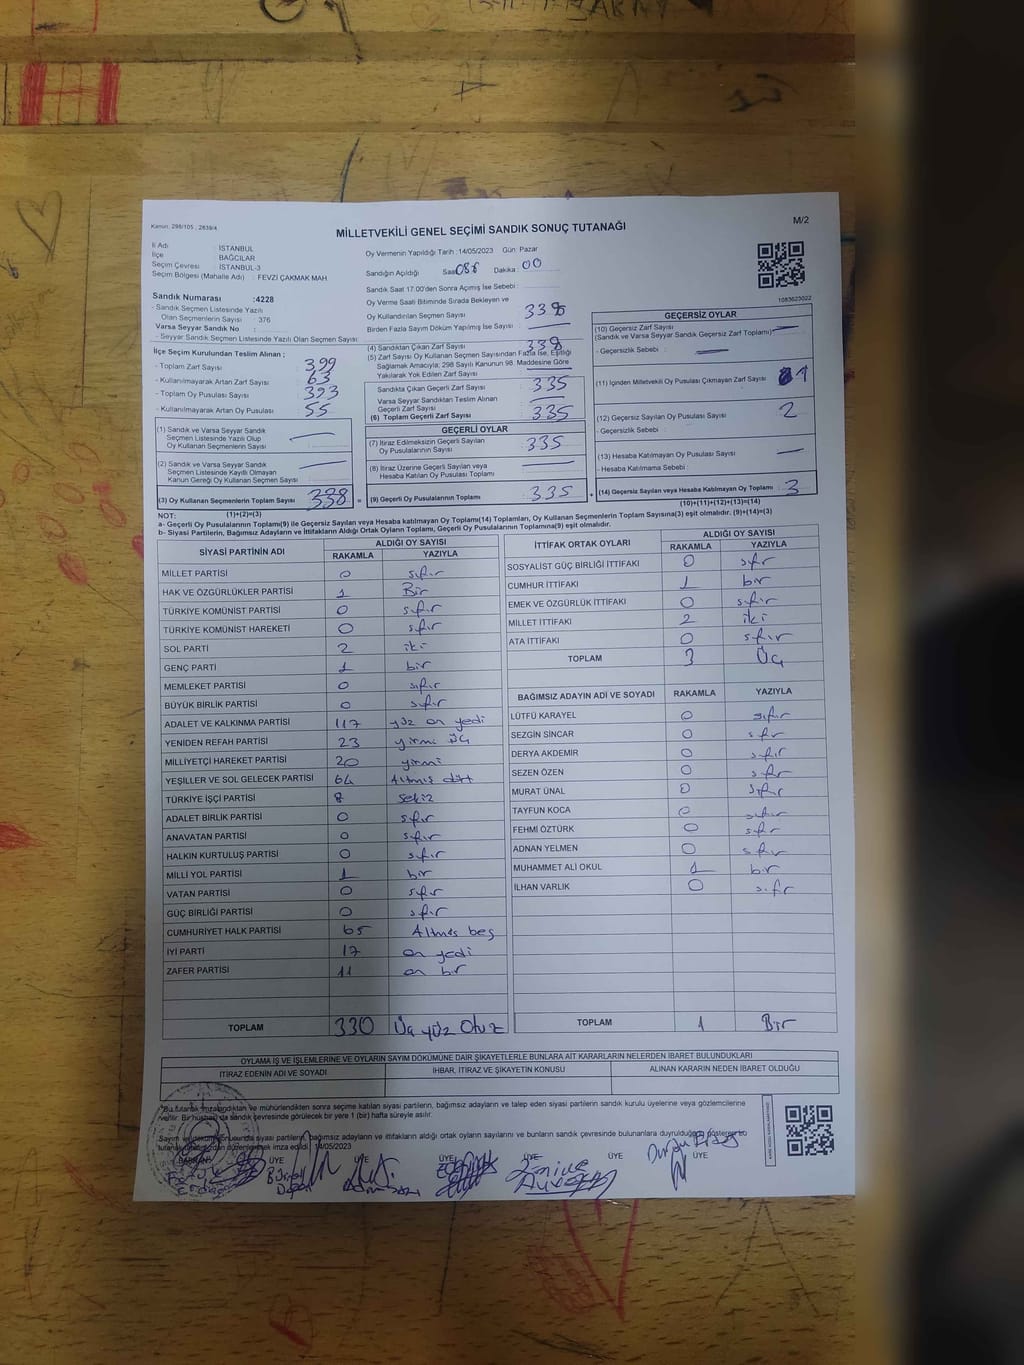 Kanun: 298/105 ; 2839/4
MİLLETVEKİLİ GENEL SEÇİMİ SANDIK SONUÇ TUTANAĞI
M/2
İl Adı : İSTANBUL
İlçe : BAĞCILAR
Seçim Çevresi : İSTANBUL-3
Seçim Bölgesi (Mahalle Adı) : FEVZİ ÇAKMAK MAH
Sandık Numarası :4228
- Sandık Seçmen Listesinde Yazılı
Olan Seçmen Sayısı : 376
Varsa Seyyar Sandık No :
- Seyyar Sandık Seçmen Listesinde Yazılı Olan Seçmen Sayısı:
İlçe Seçim Kurulundan Teslim Alınan ;
- Toplam Zarf Sayısı : 399
- Kullanılmayarak Artan Zarf Sayısı : 63
- Toplam Oy Pusulası Sayısı : 393
- Kullanılmayarak Artan Oy Pusulası : 55
(1) Sandık ve Varsa Seyyar Sandık
Seçmen Listesinde Yazılı Olup
Oy Kullanan Seçmenlerin Sayısı :
(2) Sandık ve Varsa Seyyar Sandık
Seçmen Listesinde Kayıtlı Olmayan
Kanun Gereği Oy Kullanan Seçmen Sayısı :
(3) Oy Kullanan Seçmenlerin Toplam Sayısı : 338 =
(1)+(2)=(3)
Oy Vermenin Yapıldığı Tarih :14/05/2023 Gün: Pazar
Sandığın Açıldığı Saat 08 Dakika : 00
Sandık Saat 17.00'den Sonra Açılmış İse Sebebi :
Oy Verme Saati Bitiminde Sırada Bekleyen ve
Oy Kullandırılan Seçmen Sayısı : 338
Birden Fazla Sayım Döküm Yapılmış İse Sayısı :
(4) Sandıktan Çıkan Zarf Sayısı : 338
(5) Zarf Sayısı Oy Kullanan Seçmen Sayısından Fazla İse, Eşitliği
Sağlamak Amacıyla; 298 Sayılı Kanunun 98. Maddesine Göre
Yakılarak Yok Edilen Zarf Sayısı :
Sandıkta Çıkan Geçerli Zarf Sayısı : 335
Varsa Seyyar Sandıktan Teslim Alınan
Geçerli Zarf Sayısı :
(6) Toplam Geçerli Zarf Sayısı : 335
GEÇERLİ OYLAR
(7) İtiraz Edilmeksizin Geçerli Sayılan
Oy Pusulalarının Sayısı : 335
(8) İtiraz Üzerine Geçerli Sayılan veya
Hesaba Katılan Oy Pusulası Toplamı :
(9) Geçerli Oy Pusulalarının Toplamı : 335 +
1083623022
GEÇERSİZ OYLAR
(10) Geçersiz Zarf Sayısı :
(Sandık ve Varsa Seyyar Sandık Geçersiz Zarf Toplamı)
- Geçersizlik Sebebi :
(11) İçinden Milletvekili Oy Pusulası Çıkmayan Zarf Sayısı : 1
(12) Geçersiz Sayılan Oy Pusulası Sayısı : 2
- Geçersizlik Sebebi :
(13) Hesaba Katılmayan Oy Pusulası Sayısı :
- Hesaba Katılmama Sebebi :
(14) Geçersiz Sayılan veya Hesaba Katılmayan Oy Toplamı : 3
(10)+(11)+(12)+(13)=(14)
NOT:
a- Geçerli Oy Pusulalarının Toplamı(9) ile Geçersiz Sayılan veya Hesaba katılmayan Oy Toplamı(14) Toplamları, Oy Kullanan Seçmenlerin Toplam Sayısına(3) eşit olmalıdır. (9)+(14)=(3)
b- Siyasi Partilerin, Bağımsız Adayların ve İttifakların Aldığı Ortak Oyların Toplamı, Geçerli Oy Pusulalarının Toplamına(9) eşit olmalıdır.
SİYASİ PARTİNİN ADI ALDIĞI OY SAYISI
RAKAMLA YAZIYLA
MİLLET PARTİSİ 0 sıfır
HAK VE ÖZGÜRLÜKLER PARTİSİ 1 Bir
TÜRKİYE KOMÜNİST PARTİSİ 0 sıfır
TÜRKİYE KOMÜNİST HAREKETİ 0 sıfır
SOL PARTİ 2 iki
GENÇ PARTİ 1 bir
MEMLEKET PARTİSİ 0 sıfır
BÜYÜK BİRLİK PARTİSİ 0 sıfır
ADALET VE KALKINMA PARTİSİ 117 yüz on yedi
YENİDEN REFAH PARTİSİ 23 yirmi üç
MİLLİYETÇİ HAREKET PARTİSİ 20 yirmi
YEŞİLLER VE SOL GELECEK PARTİSİ 64 Altmış dört
TÜRKİYE İŞÇİ PARTİSİ 8 sekiz
ADALET BİRLİK PARTİSİ 0 sıfır
ANAVATAN PARTİSİ 0 sıfır
HALKIN KURTULUŞ PARTİSİ 0 sıfır
MİLLİ YOL PARTİSİ 1 bir
VATAN PARTİSİ 0 sıfır
GÜÇ BİRLİĞİ PARTİSİ 0 sıfır
CUMHURİYET HALK PARTİSİ 65 Altmış beş
İYİ PARTİ 17 on yedi
ZAFER PARTİSİ 11 on bir
TOPLAM 330 Üç yüz Otuz
İTTİFAK ORTAK OYLARI ALDIĞI OY SAYISI
RAKAMLA YAZIYLA
SOSYALİST GÜÇ BİRLİĞİ İTTİFAKI 0 sıfır
CUMHUR İTTİFAKI 1 bir
EMEK VE ÖZGÜRLÜK İTTİFAKI 0 sıfır
MİLLET İTTİFAKI 2 iki
ATA İTTİFAKI 0 sıfır
TOPLAM 3 Üç
BAĞIMSIZ ADAYIN ADI VE SOYADI RAKAMLA YAZIYLA
LÜTFÜ KARAYEL 0 sıfır
SEZGİN SİNCAR 0 sıfır
DERYA AKDEMİR 0 sıfır
SEZEN ÖZEN 0 sıfır
MURAT ÜNAL 0 sıfır
TAYFUN KOCA 0 sıfır
FEHMİ ÖZTÜRK 0 sıfır
ADNAN YELMEN 0 sıfır
MUHAMMET ALİ OKUL 1 bir
İLHAN VARLIK 0 sıfır
TOPLAM 1 Bir
OYLAMA İŞ VE İŞLEMLERİNE VE OYLARIN SAYIM DÖKÜMÜNE DAİR ŞİKAYETLERLE BUNLARA AİT KARARLARIN NELERDEN İBARET BULUNDUKLARI
İTİRAZ EDENİN ADI VE SOYADI İHBAR, İTİRAZ VE ŞİKAYETİN KONUSU ALINAN KARARIN NEDEN İBARET OLDUĞU
*Bu tutanak imzalandıktan ve mühürlendikten sonra seçime katılan siyasi partilerin, bağımsız adayların ve talep eden siyasi partilerin sandık kurulu üyelerine veya gözlemcilerine
verilir. Bir nüshası da sandık çevresinde görülecek bir yere 1 (bir) hafta süreyle asılır.
Sayım ve döküm sonucunda siyasi partilerin, bağımsız adayların ve ittifakların aldığı ortak oyların sayılarını ve bunların sandık çevresinde bulunanlara duyrulduğunu gösteren bu
imza edildi. 14/05/2023
BAŞKAN ÜYE ÜYE ÜYE ÜYE ÜYE ÜYE